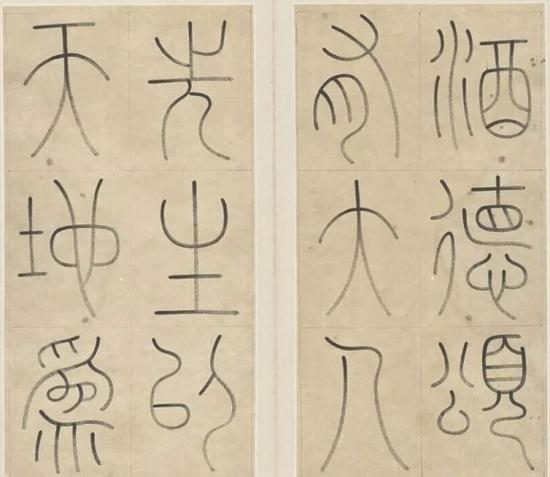 酒德頌
有大人
先生㠯
天地爲